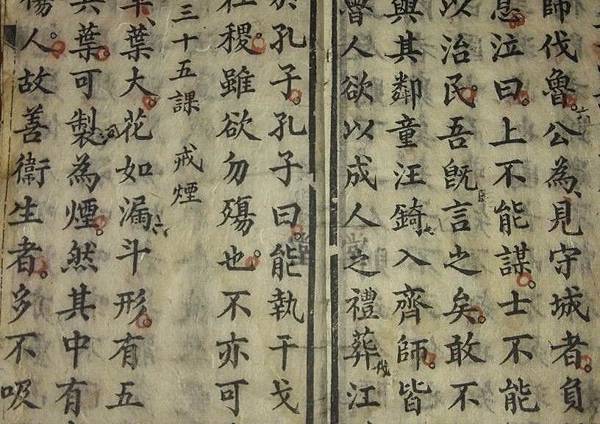 師伐魯公為見守城者負
息泣曰上不能謀士不能
以治民吾既言之矣敢不
與其鄰童汪錡入齊師皆
魯人欲以成人之禮葬江
於孔子孔子曰能執干戈
社稷雖欲勿殤也不亦可
三十五課 戒煙
草葉大花如漏斗形有五
其葉可製為煙然其中有
傷人故善衞生者多不吸